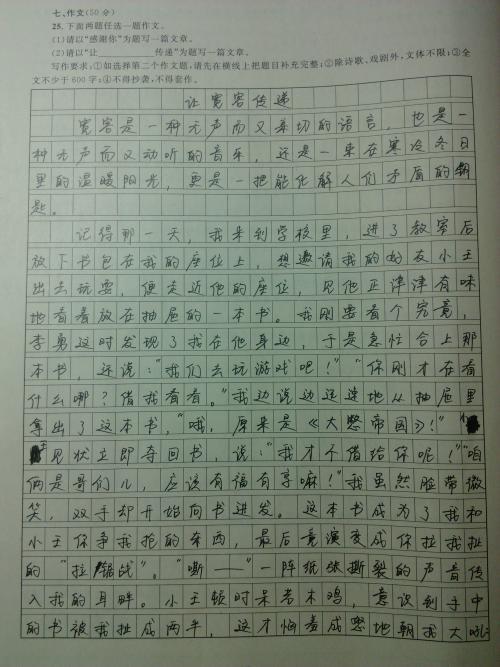 七、作文(50分)
25. 下面两题任选一题作文。
(1)请以“感谢你”为题写一篇文章。
(2)请以“让____传递”为题写一篇文章。
写作要求:①如选择第二个作文题,请先在横线上把题目补充完整;②除诗歌、戏剧外,文体不限;③全
文不少于600字;④不得抄袭,不得套作。
让宽容传递
宽容是一种无声而又亲切的语言,也是一
种无声而又动听的音乐,还是一束在寒冷冬日
里的温暖阳光,更是一把能化解人们矛盾的钥
匙。
记得那一天,我来到学校里,进了教室后
放下书包在我的座位上,想邀请我的好友小王
出去玩耍,便走近他的座位,见他正津津有味
地看着放在抽屉的一本书。我刚要看个究竟,
李勇这时发现了我在他身边,于是急忙合上那
本书,还说:“我们去玩游戏吧!”“你刚才在看
什么哪?借我看看。”我边说边迅速地从抽屉里
拿出了这本书,“哦,原来是《大憨帝国》!”小
王见状立即夺回书,说:“我才不借给你呢!”“咱
俩是哥们儿,应该有福有享嘛!”我虽然脸带微
笑,双手却开始向书进发。这本书成为了我和
小王你争我抢的东西,最后竟演变成你拉我扯
的“拉锯战”。“嘶——”一阵纸张撕裂的声音传
入我的耳畔。小王顿时呆若木鸡,意识到手中
的书被我扯成两半,这才恼羞成怒地朝我大吼: